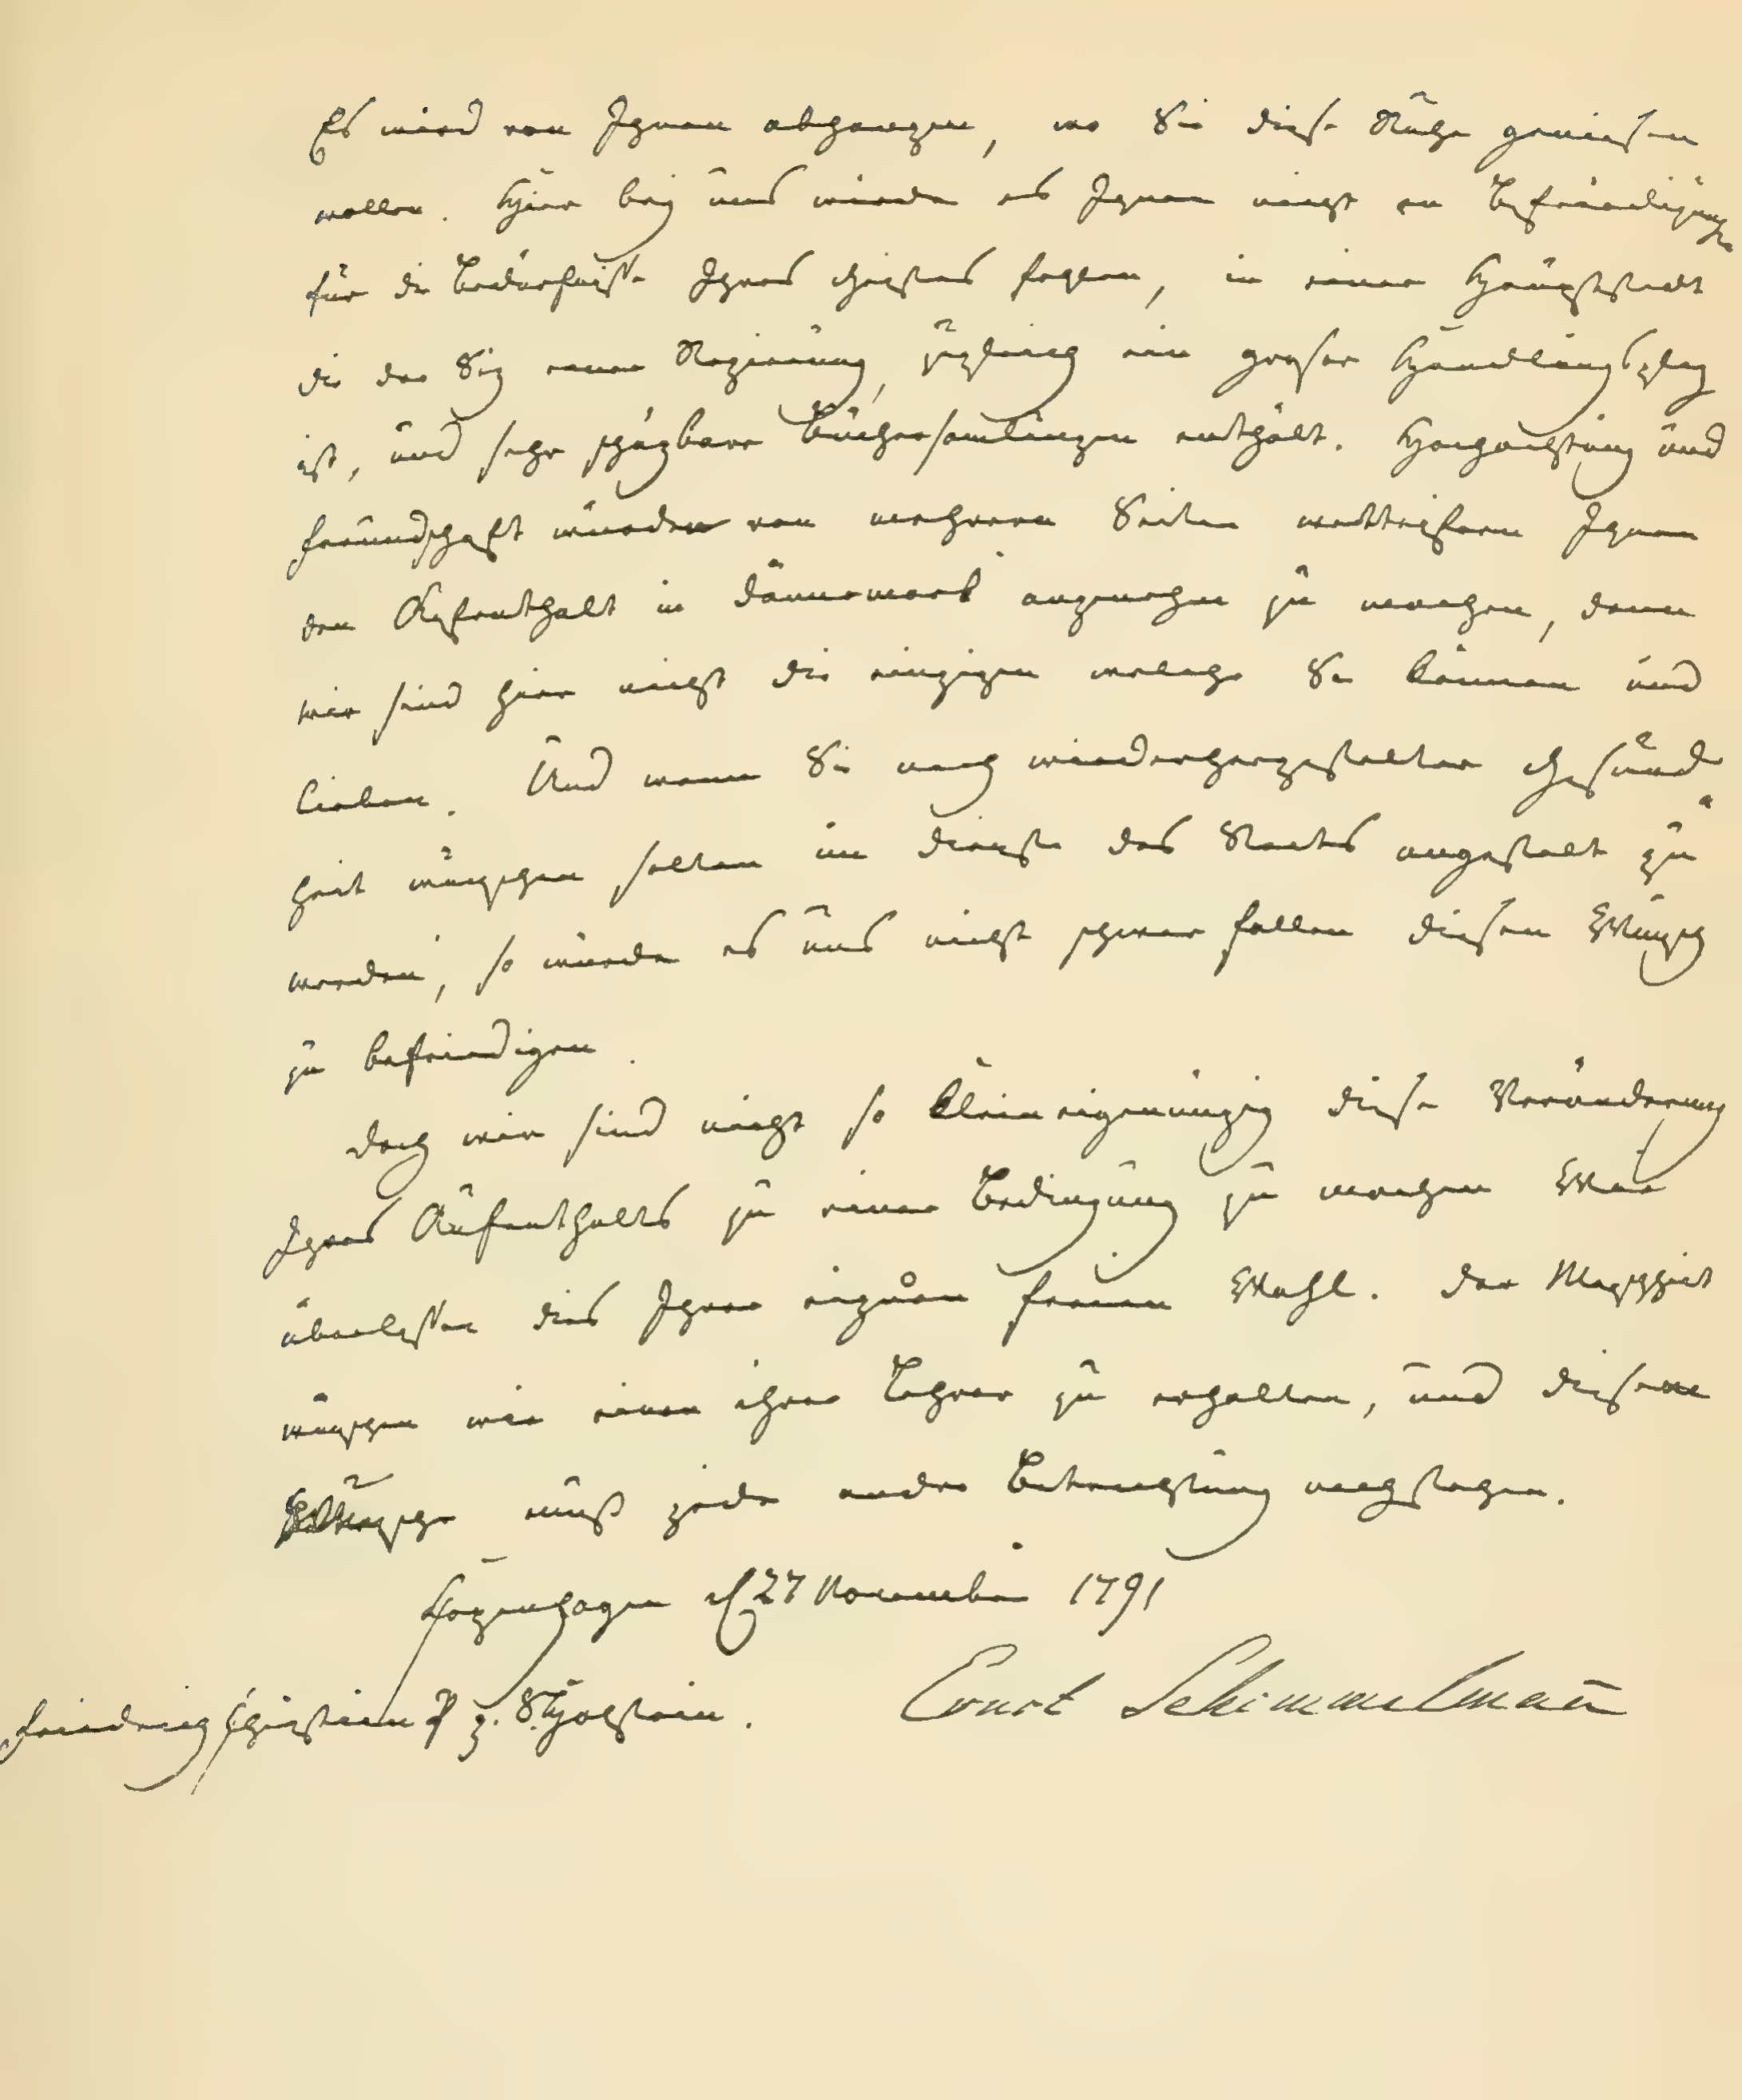 Es wird von Ihnen abhangen, wo Sie diese Ruhe geniesen
wollen. Hier bey uns würde es Ihnen nicht an Befriedigung
für die Bedürfnisse Ihres Geistes fehlen, in einer Hauptstadt
die der Siz einer Regierung, zugleich ein groser Handlungsplaz
ist, und sehr schäzbare Büchersamlungen enthält. Hochachtung und
Freundschaft würden von mehreren Seiten wetteifern Ihnen
den Aufenthalt in Dännemark angenehm zu machen, denn
wir sind hier nicht die einzigen welche Sie kennen und
lieben. Und wenn Sie nach wiederhergestelter Gesund
heit wünschen solten im Dienste des Staats angestelt zu
werden, so würde es uns nicht schwer fallen diesen Wunsch
zu befriedigen.
Doch wir sind nicht so klein eigennüzig diese Veränderung
Ihres Aufenthalts zu einer Bedingung zu machen Wir
überlassen dies Ihrer eignen freien Wahl. Der Menschheit
wünschen wir einen ihrer Lehrer zu erhalten, und diesem
Wunsche muß jede andre Betrachtung nachstehen.
Kopenhagen d 27 November 1791
Friedrich Christian P z. S. Holstein. Ernst Schimmelmann